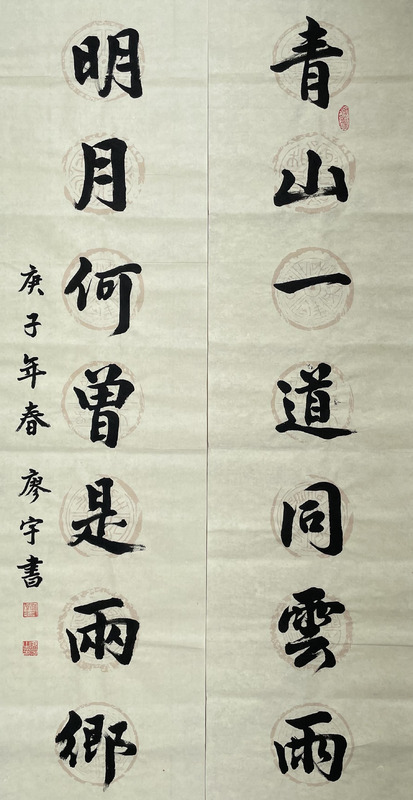 青山一道同雲雨
明月何曾是兩鄉
庚子年春 廖宇書